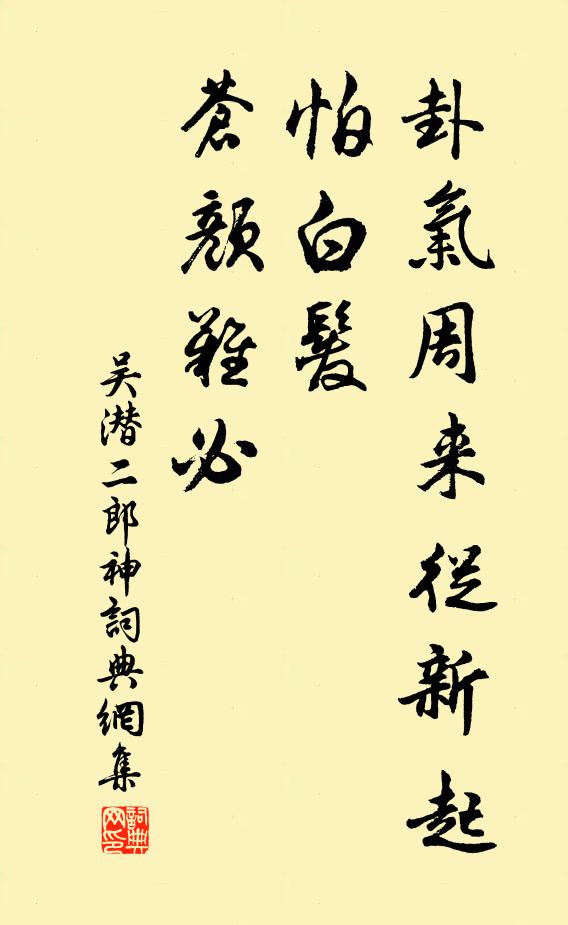 卦氣周来從新起
怕白髮
蒼顏難必
吴潜二郎神詞典網集
詞典網印